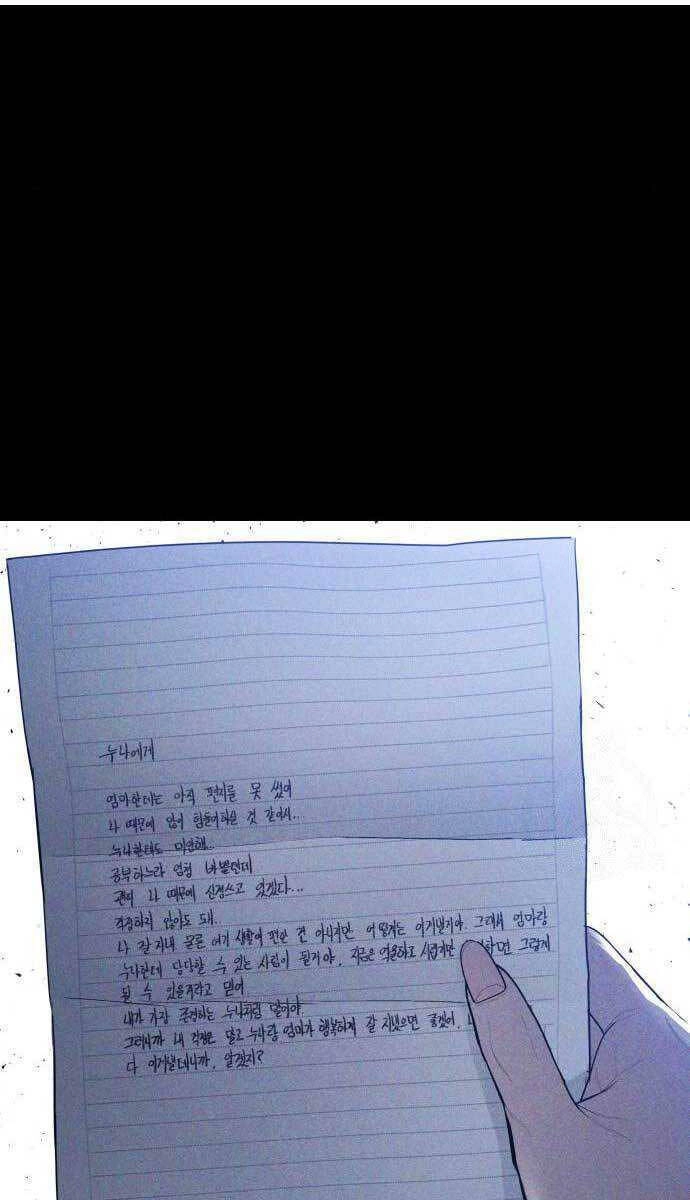 누나에게
엄마한테는 아직 편지를 못 썼어
나 때문에 많이 힘들어하실 것 같아서..
누나한테도 미안해..
공부하느라 엄청 바쁠텐데
괜히 나 때문에 신경쓰고 있겠다...
걱정하지 않아도 돼.
나 잘 지내 물론 여기 생활이 편한 건 아니지만 어떻게든 이겨낼거야. 그래서 엄마랑
누나한테 당당할 수 있는 사람이 될거야. 지금은 억울하고 시럽지만 하면 그렇게
될 수 있을거라고 믿어
내가 가장 존경하는 누나처럼 말이야
그러니까 내 걱정은 말고 누나랑 엄마가 행복하게 잘 지냈으면 좋겠어.
다 이겨낼테니까, 알겠지?